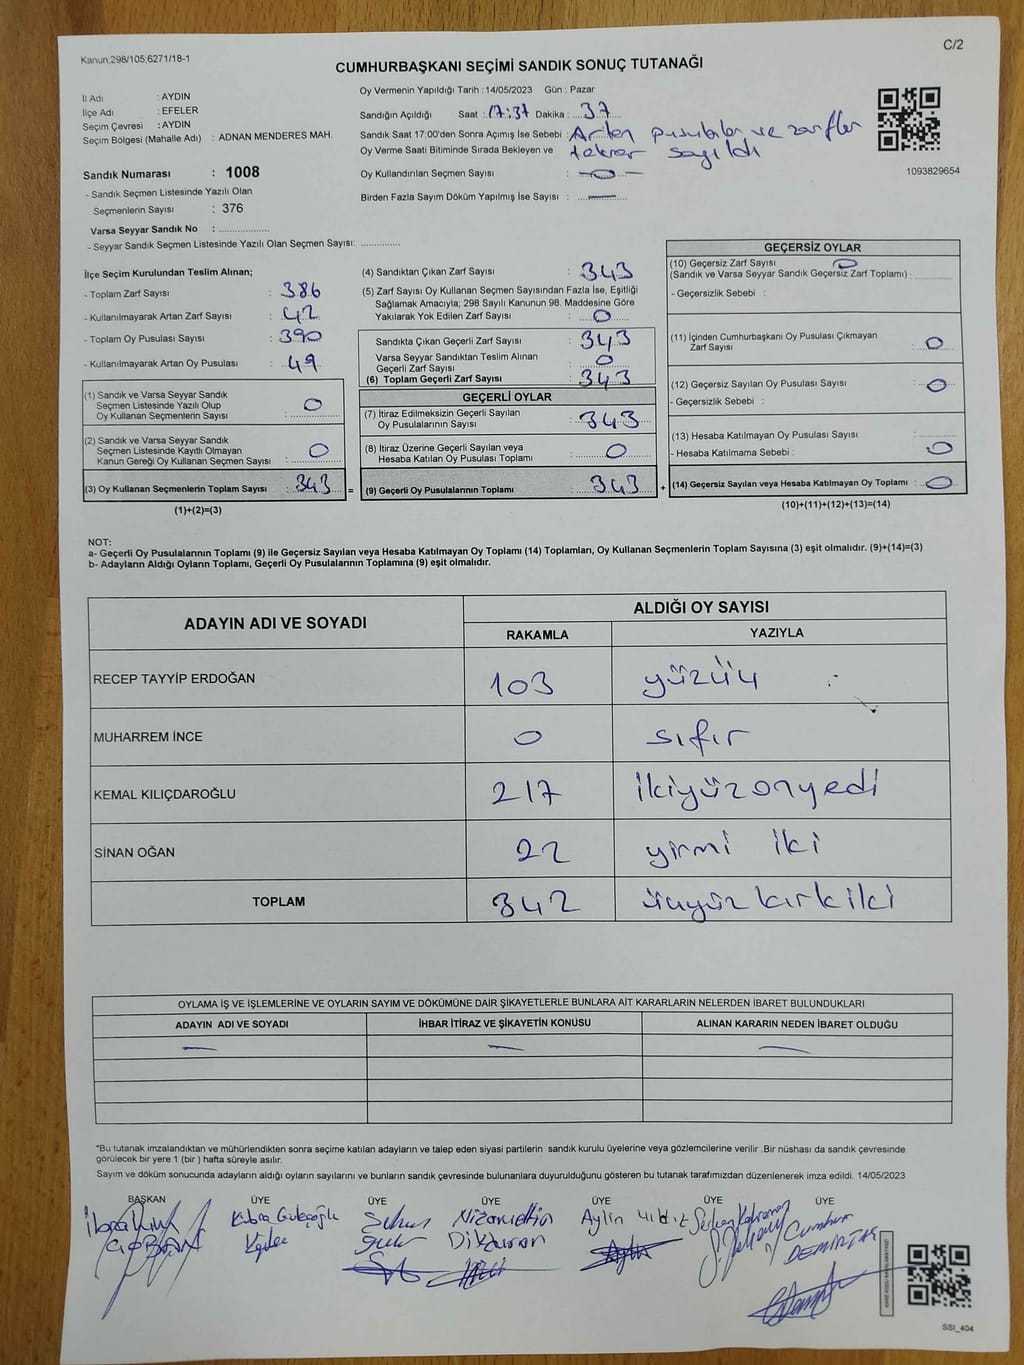 C/2
Kanun;298/105;6271/18-1
CUMHURBAŞKANI SEÇİMİ SANDIK SONUÇ TUTANAĞI
İl Adı : AYDIN
İlçe Adı : EFELER
Seçim Çevresi : AYDIN
Seçim Bölgesi (Mahalle Adı) : ADNAN MENDERES MAH.
Sandık Numarası : 1008
- Sandık Seçmen Listesinde Yazılı Olan
Seçmenlerin Sayısı : 376
Varsa Seyyar Sandık No :
- Seyyar Sandık Seçmen Listesinde Yazılı Olan Seçmen Sayısı:
Oy Vermenin Yapıldığı Tarih : 14/05/2023 Gün : Pazar
Sandığın Açıldığı Saat : 17:37 Dakika : 37
Sandık Saat 17:00'den Sonra Açımış İse Sebebi : Artan pusulalar ve zarflar
Oy Verme Saati Bitiminde Sırada Bekleyen ve tekrar sayıldı
Oy Kullandırılan Seçmen Sayısı : 0
Birden Fazla Sayım Döküm Yapılmış İse Sayısı : —
1093829654
İlçe Seçim Kurulundan Teslim Alınan;
- Toplam Zarf Sayısı : 386
- Kullanılmayarak Artan Zarf Sayısı : 42
- Toplam Oy Pusulası Sayısı : 390
- Kullanılmayarak Artan Oy Pusulası : 49
(1) Sandık ve Varsa Seyyar Sandık
Seçmen Listesinde Yazılı Olup
Oy Kullanan Seçmenlerin Sayısı : 0
(2) Sandık ve Varsa Seyyar Sandık
Seçmen Listesinde Kayıtlı Olmayan
Kanun Gereği Oy Kullanan Seçmen Sayısı : 0
(3) Oy Kullanan Seçmenlerin Toplam Sayısı : 343 =
(1)+(2)=(3)
(4) Sandıktan Çıkan Zarf Sayısı : 343
(5) Zarf Sayısı Oy Kullanan Seçmen Sayısından Fazla İse, Eşitliği
Sağlamak Amacıyla; 298 Sayılı Kanunun 98. Maddesine Göre
Yakılarak Yok Edilen Zarf Sayısı : 0
Sandıkta Çıkan Geçerli Zarf Sayısı : 343
Varsa Seyyar Sandıktan Teslim Alınan
Geçerli Zarf Sayısı : 0
(6) Toplam Geçerli Zarf Sayısı : 343
GEÇERLİ OYLAR
(7) İtiraz Edilmeksizin Geçerli Sayılan
Oy Pusulalarının Sayısı : 343
(8) İtiraz Üzerine Geçerli Sayılan veya
Hesaba Katılan Oy Pusulası Toplamı : 0
(9) Geçerli Oy Pusulalarının Toplamı : 343 +
GEÇERSİZ OYLAR
(10) Geçersiz Zarf Sayısı 0
(Sandık ve Varsa Seyyar Sandık Geçersiz Zarf Toplamı) :
- Geçersizlik Sebebi :
(11) İçinden Cumhurbaşkanı Oy Pusulası Çıkmayan
Zarf Sayısı : 0
(12) Geçersiz Sayılan Oy Pusulası Sayısı : 0
- Geçersizlik Sebebi :
(13) Hesaba Katılmayan Oy Pusulası Sayısı
- Hesaba Katılmama Sebebi : 0
(14) Geçersiz Sayılan veya Hesaba Katılmayan Oy Toplamı : 0
(10)+(11)+(12)+(13)=(14)
NOT:
a- Geçerli Oy Pusulalarının Toplamı (9) ile Geçersiz Sayılan veya Hesaba Katılmayan Oy Toplamı (14) Toplamları, Oy Kullanan Seçmenlerin Toplam Sayısına (3) eşit olmalıdır. (9)+(14)=(3)
b- Adayların Aldığı Oyların Toplamı, Geçerli Oy Pusulalarının Toplamına (9) eşit olmalıdır.
ADAYIN ADI VE SOYADI
ALDIĞI OY SAYISI
RAKAMLA YAZIYLA
RECEP TAYYİP ERDOĞAN 103 yüzüç
MUHARREM İNCE 0 sıfır
KEMAL KILIÇDAROĞLU 217 ikiyüzonyedi
SİNAN OĞAN 22 yirmi iki
TOPLAM 342 üçyüzkırkiki
OYLAMA İŞ VE İŞLEMLERİNE VE OYLARIN SAYIM VE DÖKÜMÜNE DAİR ŞİKAYETLERLE BUNLARA AİT KARARLARIN NELERDEN İBARET BULUNDUKLARI
ADAYIN ADI VE SOYADI İHBAR İTİRAZ VE ŞİKAYETİN KONUSU ALINAN KARARIN NEDEN İBARET OLDUĞU
— — —
*Bu tutanak imzalandıktan ve mühürlendikten sonra seçime katılan adayların ve talep eden siyasi partilerin sandık kurulu üyelerine veya gözlemcilerine verilir .Bir nüshası da sandık çevresinde
görülecek bir yere 1 (bir ) hafta süreyle asılır.
Sayım ve döküm sonucunda adayların aldığı oyların sayılarını ve bunların sandık çevresinde bulunanlara duyurulduğunu gösteren bu tutanak tarafımızdan düzenlenerek imza edildi. 14/05/2023
BAŞKAN ÜYE ÜYE ÜYE ÜYE ÜYE ÜYE
İbrahim Kübra Nizamettin Aylin Yıldız Serkan Cumhur
ÇOBAN DEMİRTAŞ
SSI_404